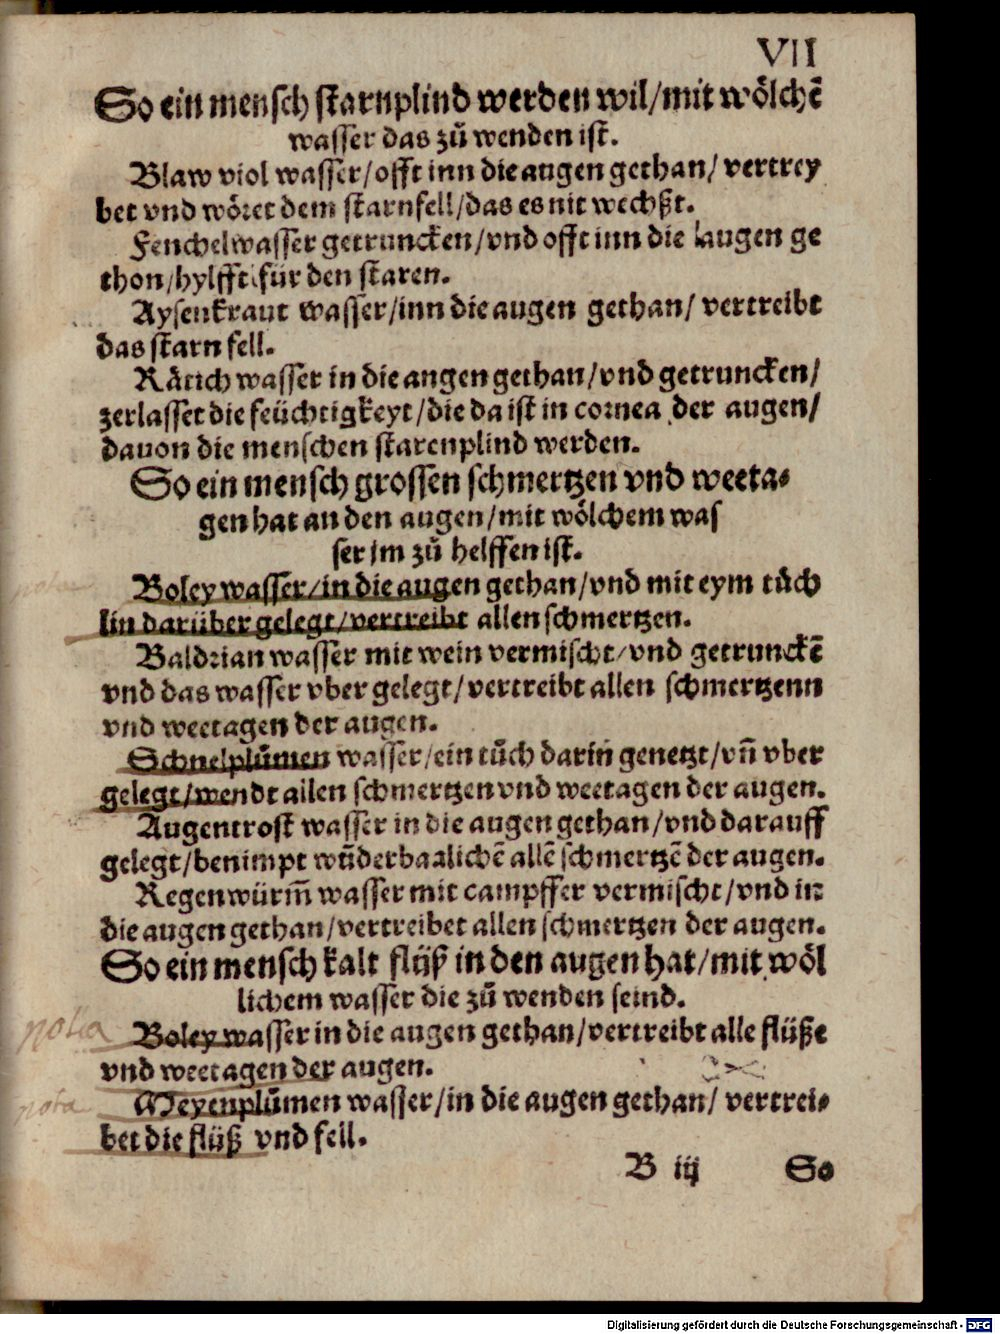 VII
So ein mensch starnplind werden wil/mit wölchē
wasser das zů wenden ist.
Blaw viol wasser/offt inn die augen gethan/ vertrey
bet vnd wöret dem starnfell/das es nit wechßt.
Fenchelwasser getruncken/vnd offt inn die augen ge
thon/hylfft für den staren.
Aysenkraut wasser/inn die augen gethan/ vertreibt
das starn fell.
Rätich wasser in die angen gethan/vnd getruncken/
zerlasset die feüchtigkeyt/die da ist in cornea der augen/
dauon die menschen starenplind werden.
So ein mensch grossen schmertzen vnd weeta⸗
gen hat an den augen/mit wölchem was
ser jm zů helffen ist.
Boley wasser/in die augen gethan/vnd mit eym tůch
lin darüber gelegt/vertreibt allen schmertzen.
Baldrian wasser mit wein vermischt/vnd getrunckē
vnd das wasser vber gelegt/vertreibt allen schmertzenn
vnd weetagen der augen.
Schnelplůmen wasser/ein tůch darin genetzt/vn̄ vber
gelegt/wendt allen schmertzen vnd weetagen der augen.
Augentrost wasser in die augen gethan/vnd darauff
gelegt/benimpt wūderbaalichē allē schmertzē der augen.
Regenwürm̄ wasser mit campffer vermischt/vnd in
die augen gethan/vertreibet allen schmertzen der augen.
So ein mensch kalt flüß in den augen hat/mit wöl
lichem wasser die zů wenden seind.
nota Boley wasser in die augen gethan/vertreibt alle flüße
vnd weetagen der augen.
nota Meyenplůmen wasser/in die augen gethan/ vertrei⸗
bet die flüß vnd fell.
B iij So
Digitalisierung gefördert durch die Deutsche Forschungsgemeinschaft - DFG